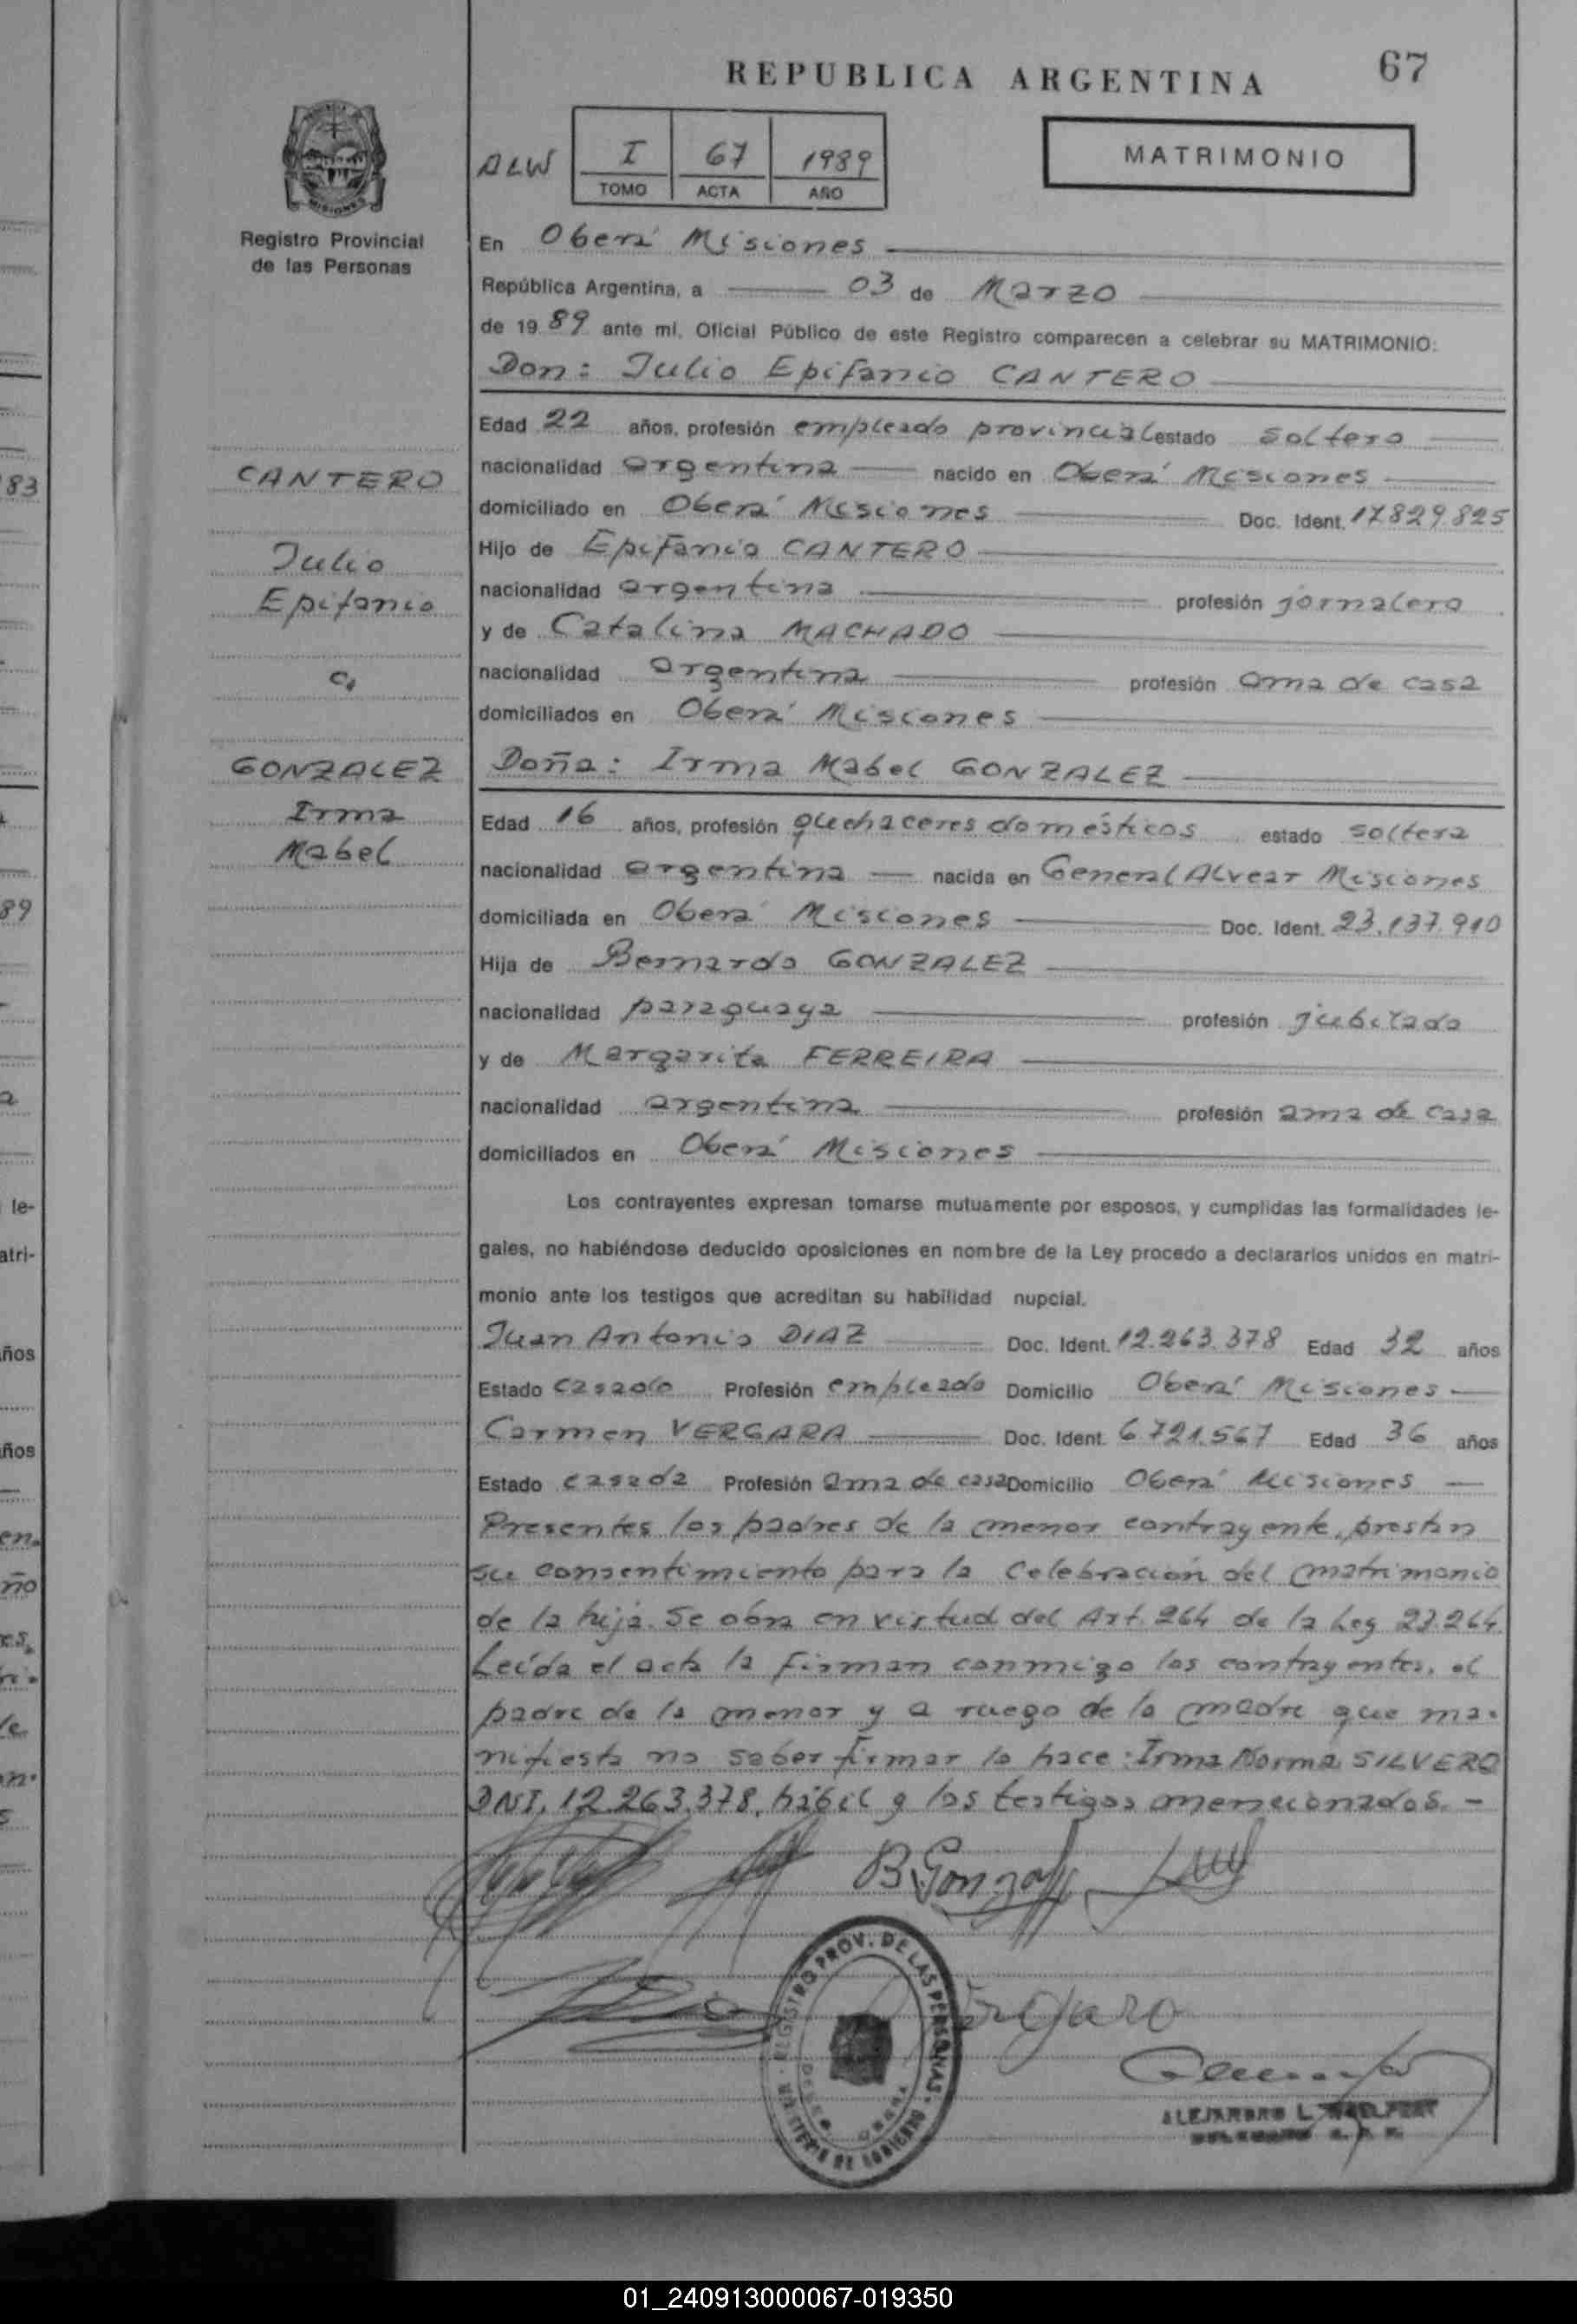 REPUBLICA ARGENTINA
67
ALW
I
67
1989
TOMO
ACTA
AÑO
MATRIMONIO
Registro Provincial
de las Personas
En Oberá Misiones
República Argentina, a 03 de Marzo
de 19 89 ante mí, Oficial Público de este Registro comparecen a celebrar su MATRIMONIO:
Don: Julio Epifanio CANTERO
Edad 22 años, profesión empleado provincial estado soltero
nacionalidad argentina nacido en Oberá Misiones
domiciliado en Oberá Misiones Doc. Ident. 17829.825
Hijo de Epifanio CANTERO
nacionalidad argentina profesión jornalero
y de Catalina MACHADO
nacionalidad argentina profesión ama de casa
domiciliados en Oberá Misiones
CANTERO
Julio
Epifanio
c,
GONZALEZ
Irma
Mabel
Doña: Irma Mabel GONZALEZ
Edad 16 años, profesión quehaceres domésticos estado soltera
nacionalidad argentina nacida en General Alvear Misiones
domiciliada en Oberá Misiones Doc. Ident. 23.137.910
Hija de Bernardo GONZALEZ
nacionalidad paraguaya profesión jubilado
y de Margarita FERREIRA
nacionalidad argentina profesión ama de casa
domiciliados en Oberá Misiones
Los contrayentes expresan tomarse mutuamente por esposos, y cumplidas las formalidades le-
gales, no habiéndose deducido oposiciones en nombre de la Ley procedo a declararlos unidos en matri-
monio ante los testigos que acreditan su habilidad nupcial.
Juan Antonio DIAZ Doc. Ident. 12.263.378 Edad 32 años
Estado casado Profesión empleado Domicilio Oberá Misiones
Carmen VERGARA Doc. Ident. 6.721.567 Edad 36 años
Estado casada Profesión ama de casa Domicilio Oberá Misiones
Presentes los padres de la menor contrayente, prestan
su consentimiento para la celebración del matrimonio
de la hija. Se obra en virtud del Art. 264 de la Ley 23.264
Leída el acta la firman conmigo los contrayentes, el
padre de la menor y a ruego de la madre que ma-
nifiesta no saber firmar lo hace: Irma Norma SILVERO
DNI. 12.263.378, hábil y los testigos mencionados.-
B. Gonzalez
REGISTRO PROV. DE LAS PERSONAS
ALEJANDRO L.
83
89
le-
atri-
años
años
01_240913000067-019350